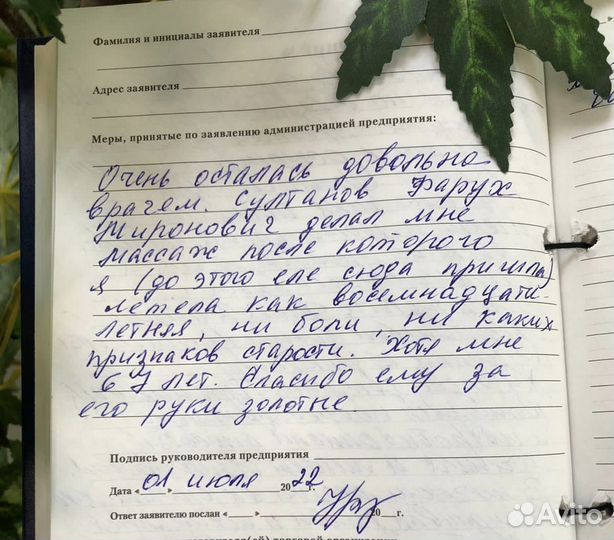 Фамилия и инициалы заявителя
Адрес заявителя
Меры, принятые по заявлению администрацией предприятия:
Очень осталась довольна
врачем. Султанов Фарух
Миронович делал мне
массаж после которого
я (до этого еле сюда пришла)
летела как восемнадцати-
летняя, ни боли, ни каких
признаков старости. Хотя мне
67 лет. Спасибо ему за
его руки золотые.
Подпись руководителя предприятия
Дата «01» июля 2022 г.
Ответ заявителю послан « » 20 г.
Avito